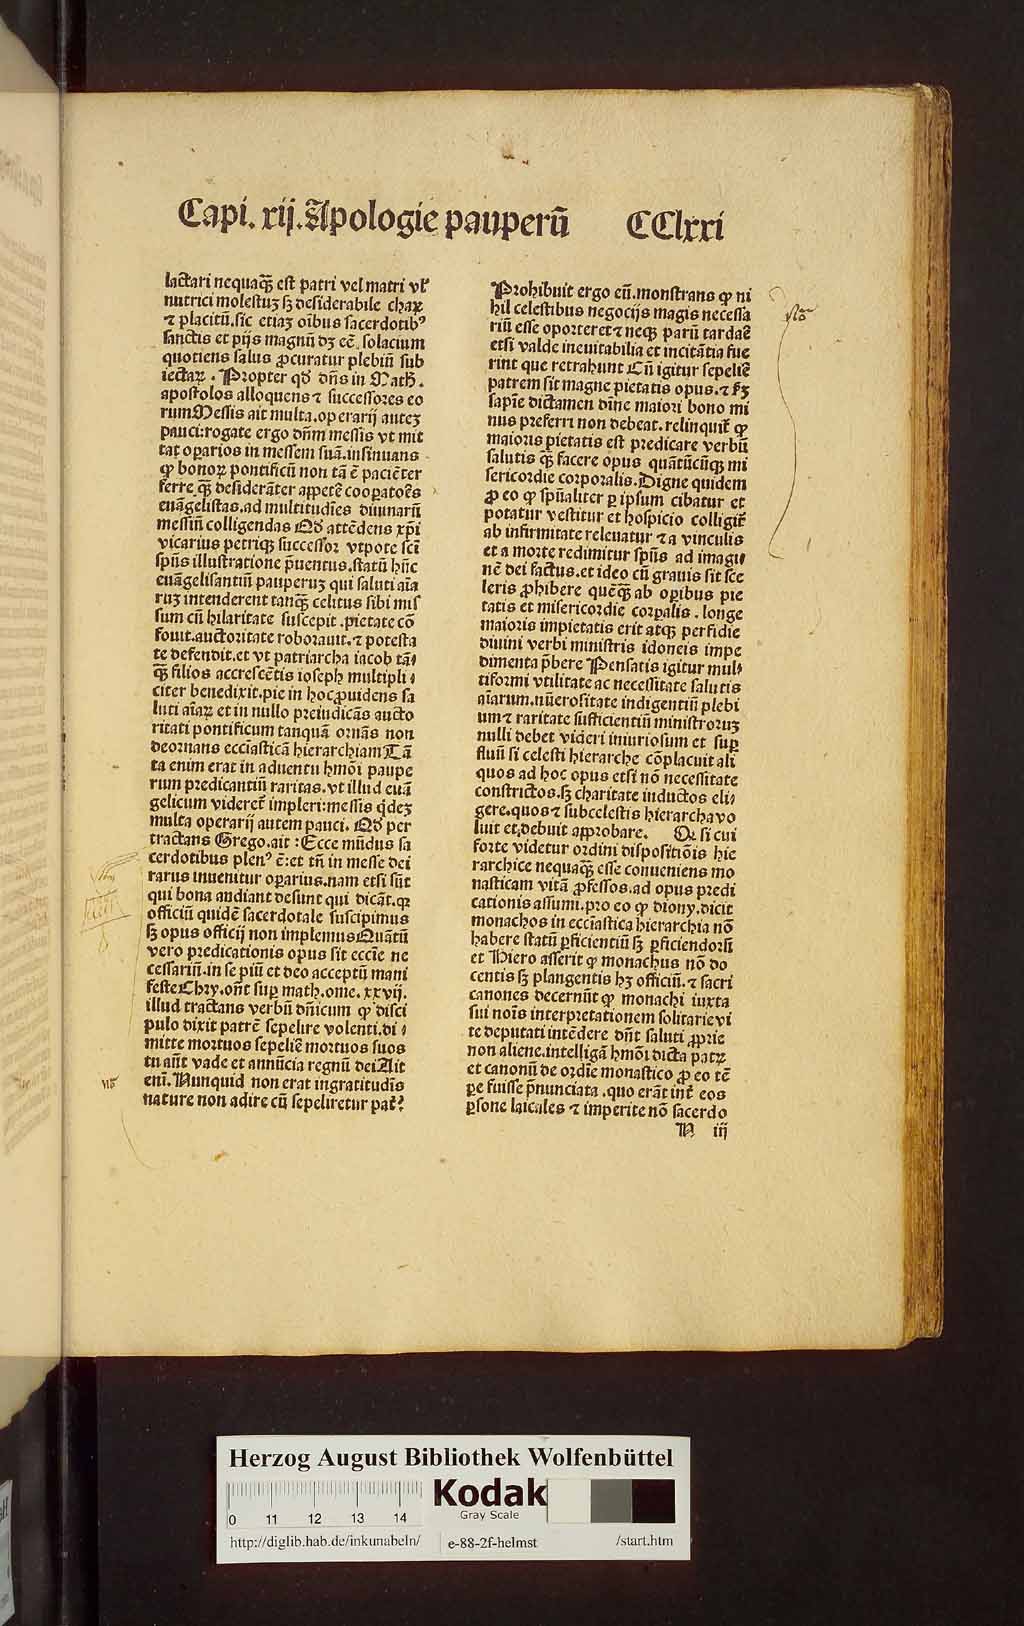 Capi. xij. Apologie pauperū CClxxi
lactari nequaq̄ʒ est patri vel matri vł
nutrici molestuʒ sʒ desiderabile chaꝝ
⁊ placitū. sic etiaʒ oībus sacerdotibꝰ
sanctis et pijs magnū dʒ eē. solacium
quotiens salus ꝓcuratur plebiū sub
iectaꝝ. Propter qđ dn̄s in Math.
apostolos alloquens ⁊ successores eo
rum Messis ait multa. operarij auteʒ
pauci: rogate ergo dn̄m messis vt mit
tat oꝑarios in messem suā. insinuans
ꝙ bonoꝝ pontificū non tā ē paciēter
ferre q̄ʒ desiderāter appetē cooꝑatoēs
euāgelistas. ad multitudīes diuinarū
messiū colligendas Qđ attēdens xp̄i
vicarius petriqʒ successor vtpote scī
sp̄ūs illustratione p̄uentus. statū hūc
euāgelisantiū pauperuʒ qui saluti aīa
ruʒ intenderent tanq̄ʒ celitus sibi mis
sum cū hilaritate suscepit. pietate cō
fouit. auctoritate roborauit. ⁊ potesta
te defendit. et vt patriarcha iacob tā⸗
q̄ʒ filios accrescētis ioseph multipli⸗
citer benedixit. pie in hoc ꝓuidens sa
luti aīaꝝ et in nullo preiudicās aucto
ritati pontificum tanquā ornās non
deornans ecciasticā hierarchiam Tā
ta enim erat in aduentu hmōi paupe
rum predicantiū raritas. vt illud euā
gelicum videret̄ impleri: messis q̄deʒ
multa operarij autem pauci. Qđ per
tractans Grego. ait: Ecce mūdus sa
cerdotibus plenꝰ ē: et tn̄ in messe dei
rarus inuenitur oꝑarius. nam etsi sūt
qui bona audiant desunt qui dicāt. qꝛ
officiū quidē sacerdotale suscipimus
sʒ opus officij non implemus Quātū
vero predicationis opus sit eccīe ne
cessariū. in se piū et deo acceptū mani
feste Chry. on̄t suꝑ math. ome. xxvij.
illud tractans verbū dn̄icum ꝙ disci
pulo dixit patrē sepelire volenti. di⸗
mitte mortuos sepeliē mortuos suos
tu aūt vade et annūcia regnū dei Ait
enī. Nunquid non erat ingratitudīs
nature non adire cū sepeliretur pat̄?
Prohibuit ergo eū. monstrans ꝙ ni
hil celestibus negocijs magis necessa
riū esse oporteret ⁊ neqʒ parū tardaē
etsi valde ineuitabilia et incitātia fue
rint que retrahunt Cū igitur sepeliē
patrem sit magne pietatis opus. ⁊ sʒ
sapīe dictamen dīne maiori bono mi
nus preferri non debeat. relinquit̄ ꝙ
maioris pietatis est predicare verbū
salutis q̄ʒ facere opus quātūcūqʒ mi
sericordie corporalis. Digne quidem
ꝓ eo ꝙ sp̄ūaliter ꝑ ipsum cibatur et
potatur vestitur et hospicio colligit̄
ab infirmitate releuatur ⁊ a vinculis
et a morte redimitur sp̄ūs ad imagi⸗
nē dei factus. et ideo cū grauis sit sce
leris ꝓhibere quēq̄ʒ ab oꝑibus pie
tatis et misericordie corꝑalis. longe
maioris impietatis erit atqʒ perfidie
diuini verbi ministris idoneis impe
dimenta p̄bere Pensatis igitur mul⸗
tiformi vtilitate ac necessitate salutis
aīarum. nūerositate indigentiū plebi
um ⁊ raritate sufficientiū ministroruʒ
nulli debet videri iniuriosum et suꝑ
fluū si celesti hierarche cōplacuit ali
quos ad hoc opus etsi nō necessitate
constrictos. sʒ charitate inductos eli⸗
gere. quos ⁊ subcelestis hierarcha vo
luit et debuit approbare. Qꝛ si cui
forte videtur ordini dispositiōis hie
rarchice nequaq̄ʒ esse conueniens mo
nasticam vitā ꝓfessos. ad opus predi
cationis assumi. pro eo ꝙ diony. dicit
monachos in ecciastica hierarchia nō
habere statū ꝑficientiū sʒ ꝑficiendorū
et Hiero asserit ꝙ monachus nō do
centis sʒ plangentis hʒ officiū. ⁊ sacri
canones decernūt ꝙ monachi iuxta
sui noīs interpretationem solitarie vi
te deputati intēdere dn̄t saluti ꝓprie
non aliene. intelligā hmōi dicta patꝝ
et canonū de ordīe monastico ꝓ eo tē
ꝑe fuisse p̄nunciata. quo erāt int̄ eos
ꝑsone laicales ⁊ imperite nō sacerdo
N iij
Herzog August Bibliothek Wolfenbüttel
0 11 12 13 14
Kodak
Gray Scale
http://diglib.hab.de/inkunabeln/ e-88-2f-helmst /start.htm